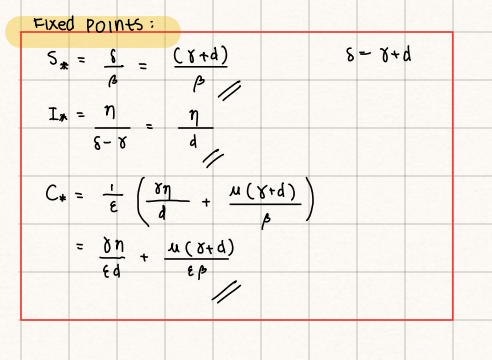 Fixed Points:
S* = δ/β = (γ+d)/β
δ = γ+d
I* = η/(δ-γ) = η/d
C* = 1/ε (γη/d + μ(γ+d)/β)
= γη/εd + μ(γ+d)/εβ